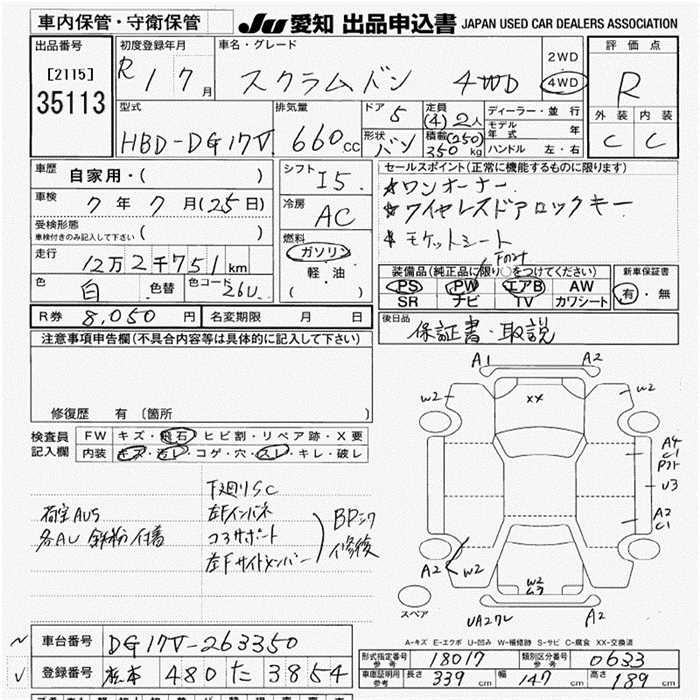 車内保管・守衛保管
JU 愛知 出品申込書 JAPAN USED CAR DEALERS ASSOCIATION
出品番号
[2115]
35113
初度登録年月
R 1 7 月
車名・グレード
スクラムバン 4WD
2WD
4WD
評価点
R
外装 内装
C C
型式
HBD-DG17V
排気量
660 cc
ドア
5
形状
バン
定員
(4) 2人
積載 (250)
350 kg
ディーラー・並行
モデル年式 年
ハンドル 左・右
車歴
自家用・( )
車検
7 年 7 月 (25日)
受検形態
車検付きのみ記入して下さい ( )
走行
12万2千751 km
色
白 色替 色コード 26U
シフト
I5
冷房
AC
燃料
ガソリン
軽・油
( )
セールスポイント(正常に機能するものに限ります)
★ワンオーナー
★ワイヤレスドアロックキー
★モケットシート
Front
装備品(純正品に限り○をつけてください)
PS PW エアB AW
SR ナビ TV カワシート
新車保証書
有・無
R券 8,050 円 名変期限 月 日
後日品
保証書・取説
注意事項申告欄(不具合内容等は具体的に記入して下さい)
修復歴 有 [箇所 ]
検査員記入欄
FW キズ・飛石・ヒビ割・リペア跡・X要
内装 キズ・汚レ・コゲ・穴・スレ・キレ・破レ
荷室AUS
各AU 鉄粉付着
下廻りSC
左Fインパネ
コアサポート
左Fサイドメンバー
BPニク
修復
A1 A2
W2 XX W2
A4
C1
U3
A2
C1
A2 W2
W2
UA27レ A2
スペア
A-キズ E-エクボ U-凹み W-補修跡 S-サビ C-腐食 XX-交換済
車台番号 DG17V-263350
登録番号 480 た 3854
形式指定番号 参考 18017 類別区分番号 参考 0633
車庫証明用 参考 長さ 339 cm 幅 147 cm 高さ 189 cm